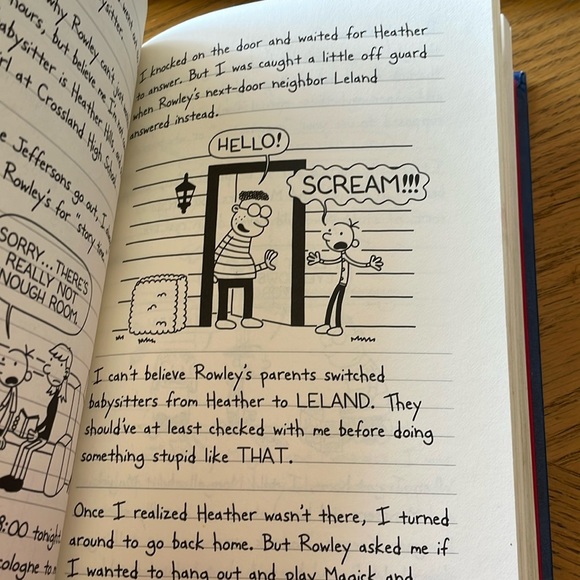 why Rowley can't just
hours, but believe me, I'm
babysitter is Heather Hills, and
girl at Crossland High School.
Jeffersons go out, I
Rowley's for "story time
SORRY... THERE'S
REALLY NOT
ENOUGH ROOM.
8:00 tonight
cologne to
I knocked on the door and waited for Heather
to answer. But I was caught a little off guard
when Rowley's next-door neighbor Leland
answered instead.
HELLO!
SCREAM!!!
I can't believe Rowley's parents switched
babysitters from Heather to LELAND. They
should've at least checked with me before doing
something stupid like THAT.
Once I realized Heather wasn't there, I turned
around to go back home. But Rowley asked me if
I wanted to hang out and play Magick and